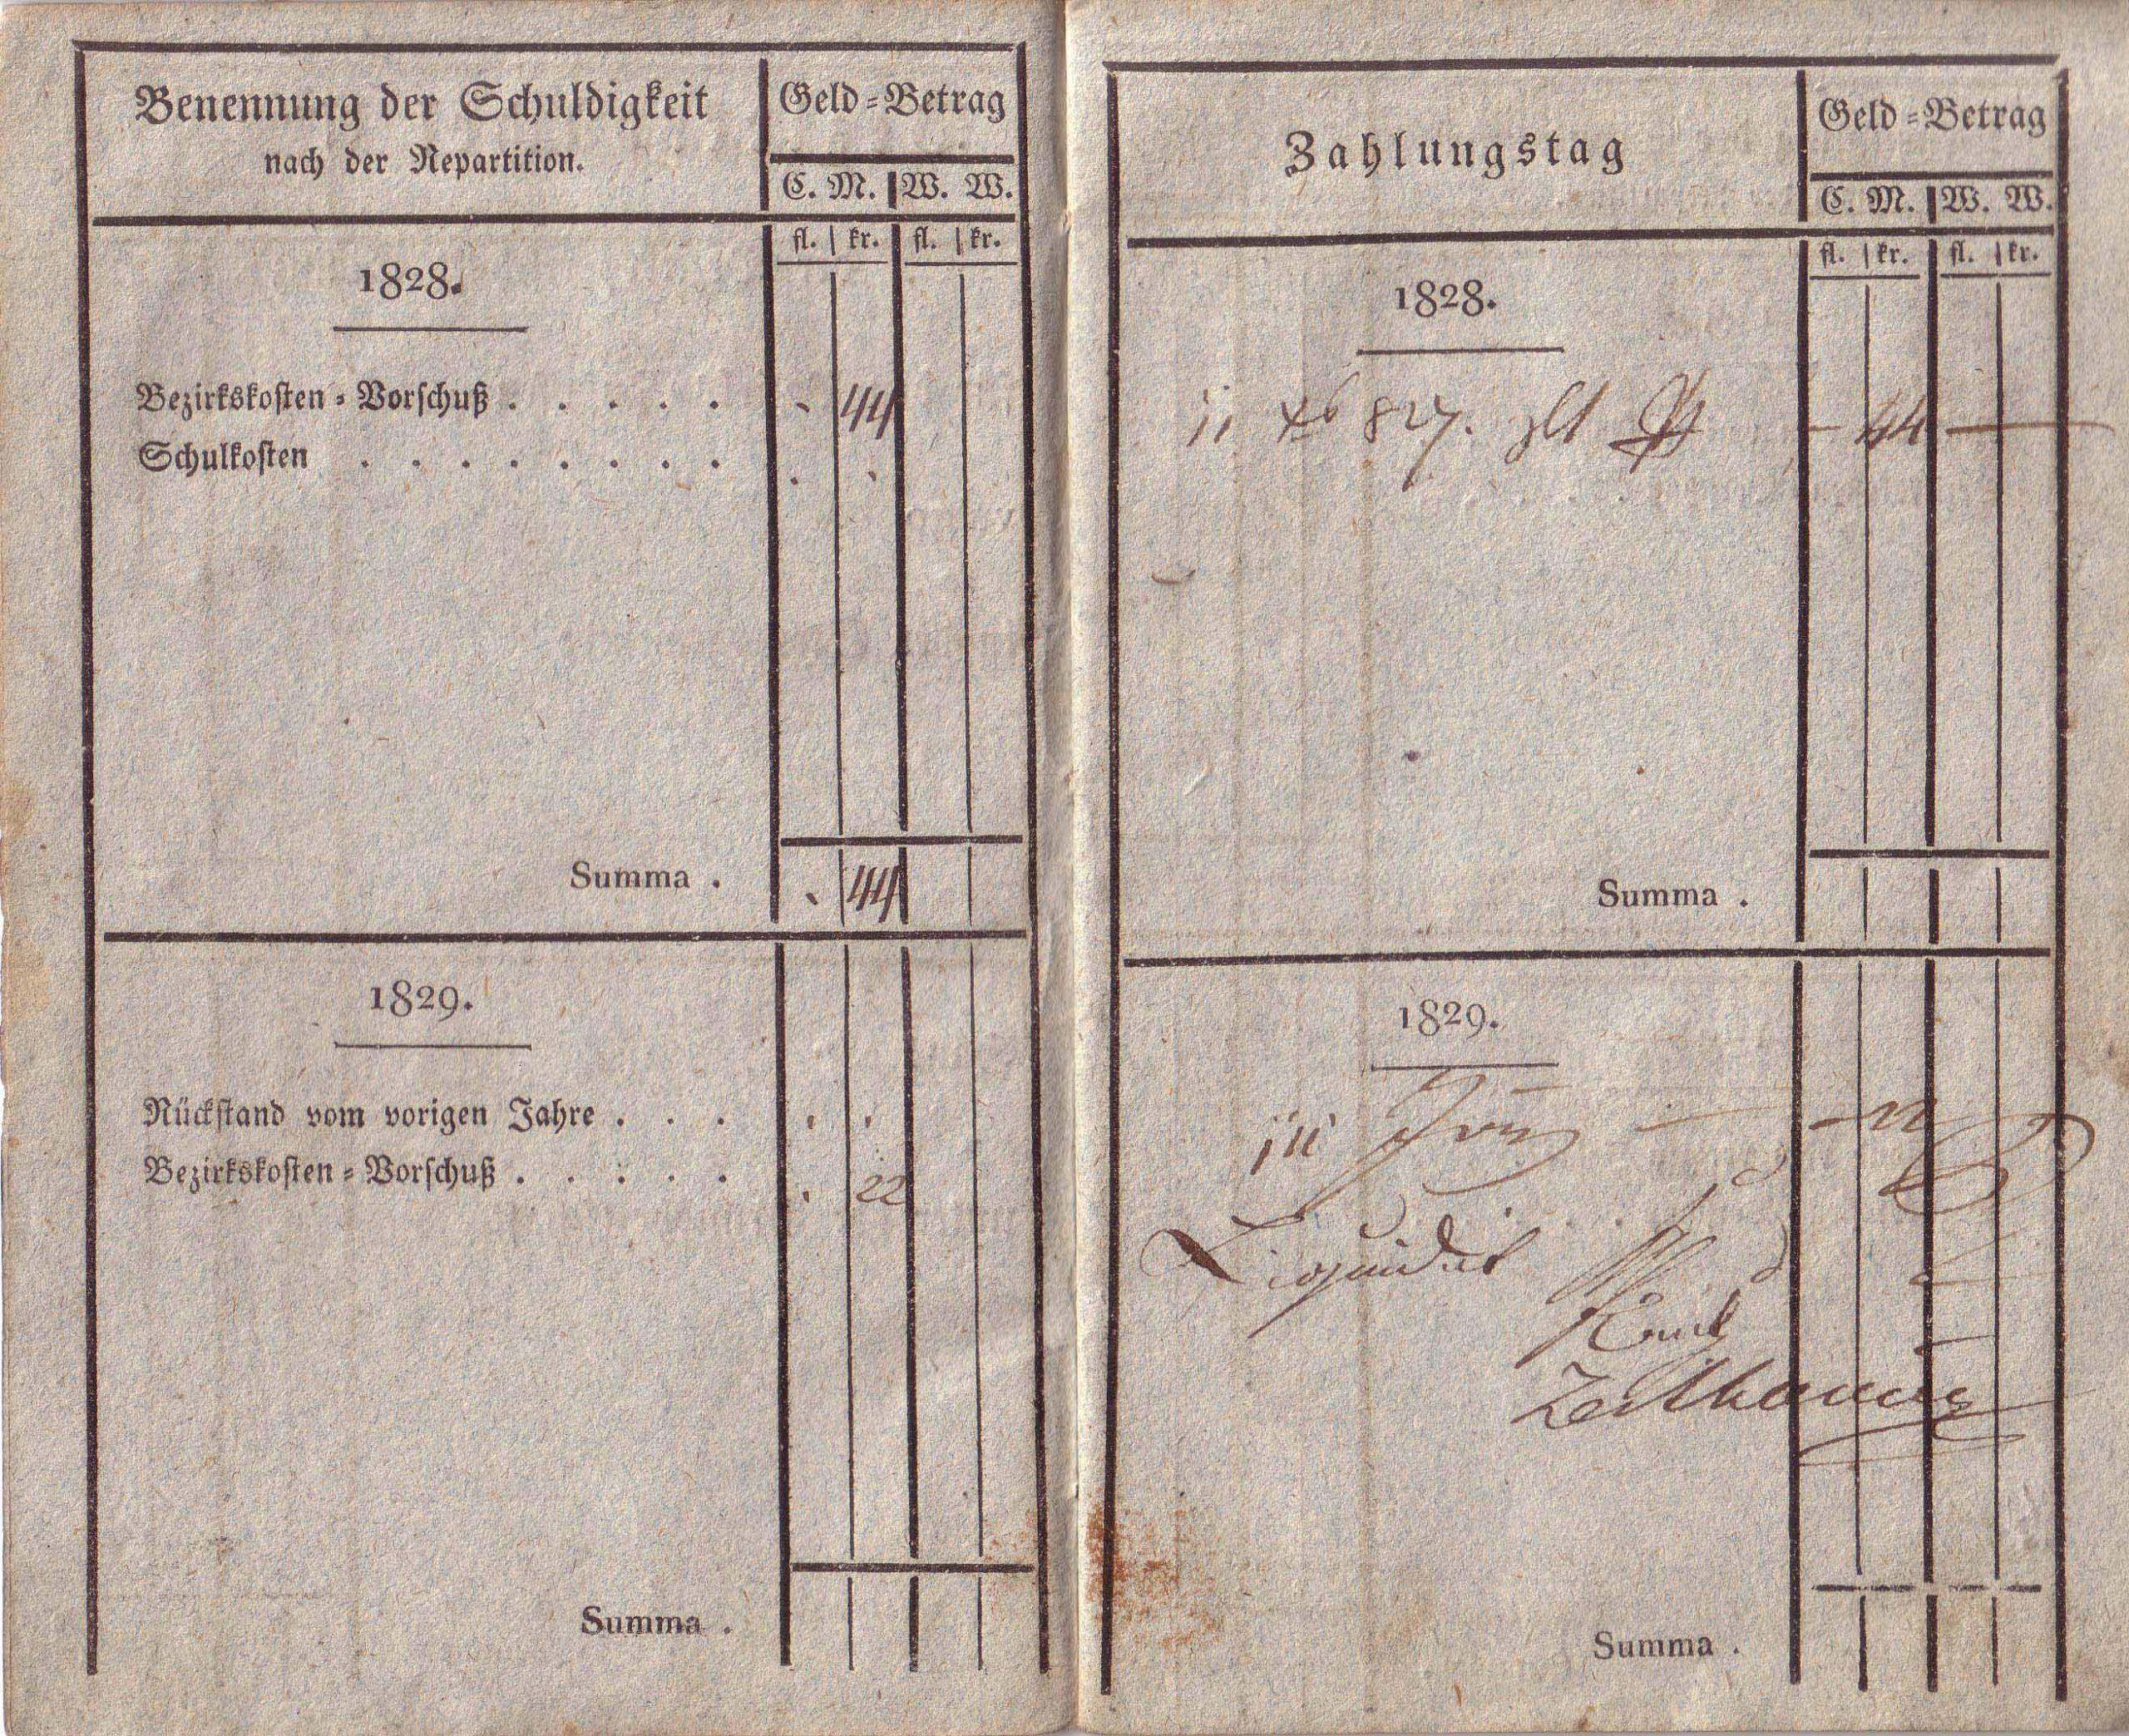 Benennung der Schuldigkeit
nach der Repartition.
Geld-Betrag
C. M. W. W.
fl. kr. fl. kr.
1828.
Bezirkskosten-Vorschuß . . . . . . 44
Schulkosten . . . . . . . .
Summa . . 44
1829.
Rückstand vom vorigen Jahre . . . . .
Bezirkskosten-Vorschuß . . . . . . 22
Summa .
Zahlungstag
Geld-Betrag
C. M. W. W.
fl. kr. fl. kr.
1828.
11 827. – 44 –
Summa .
1829.
Liquidirt
Summa .